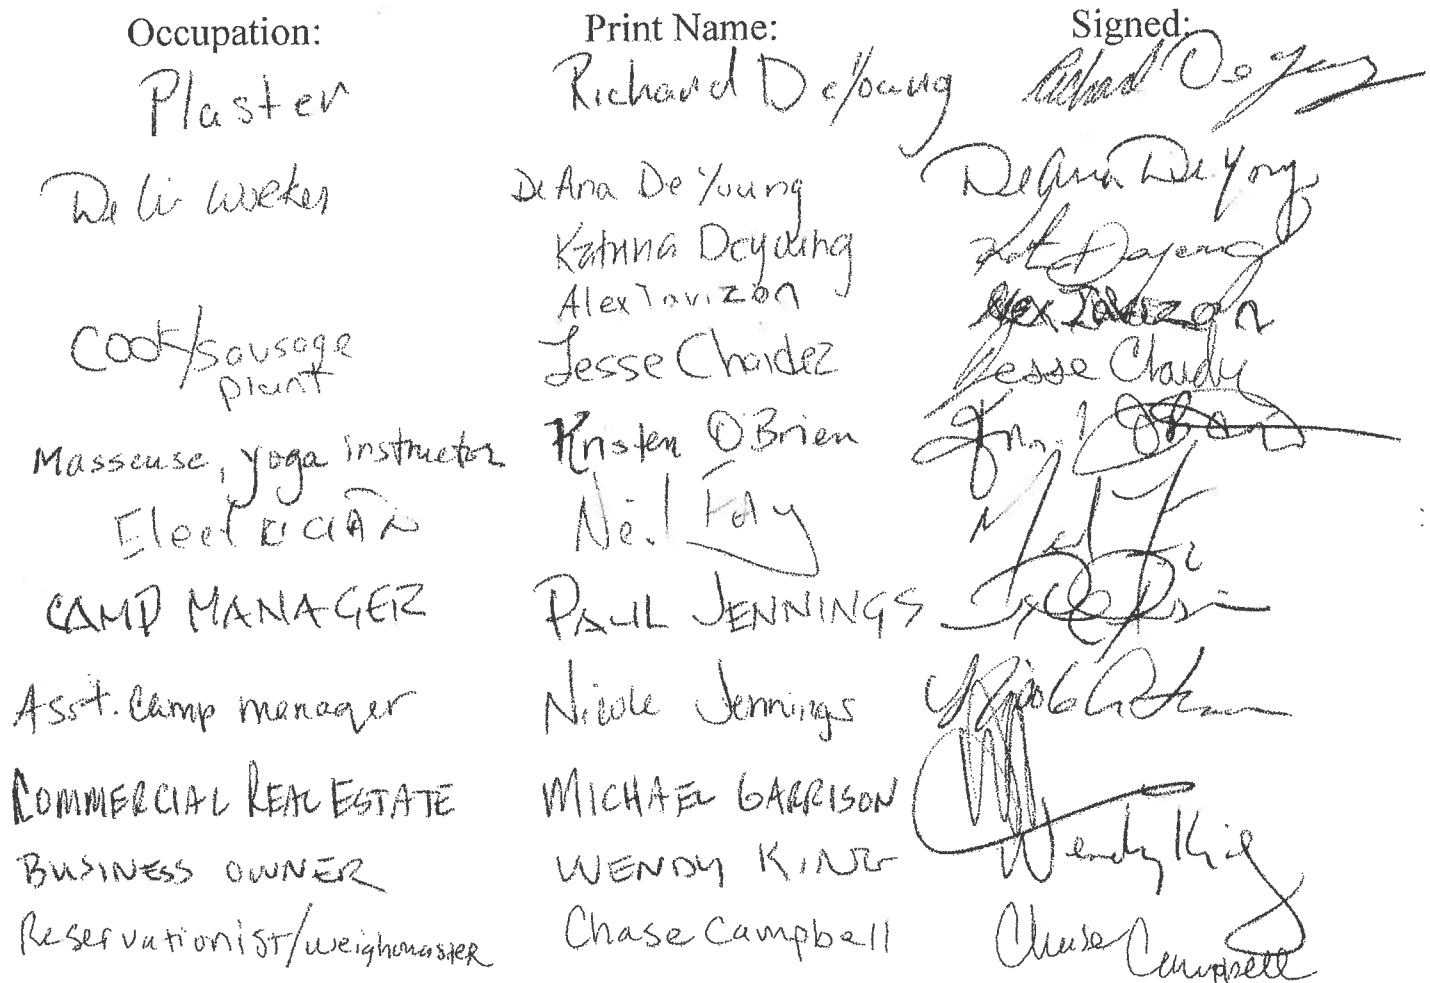 Occupation: Print Name: Signed:
Plaster Richard DeYoung Richard DeYoung
Deli worker DeAna DeYoung DeAna DeYong
Katrina Deyoung Kat Deyoung
Alex Tavizon Alex Tavizon
Cook/sausage Jesse Chaidez Jesse Chaidez
plant
Masseuse, yoga instructor Kristen O'Brien
Electrician Neil Fay Neil
CAMP MANAGER PAUL JENNINGS
Asst. Camp manager Nicole Jennings
COMMERCIAL REAL ESTATE MICHAEL GARRISON
BUSINESS OWNER WENDY KING Wendy King
Reservationist/weighmaster Chase Campbell Chase Campbell